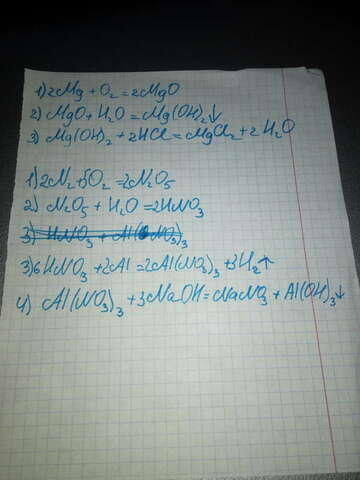 1) 2Mg + O₂ = 2MgO
2) MgO + H₂O = Mg(OH)₂↓
3) Mg(OH)₂ + 2HCl = MgCl₂ + 2H₂O
1) 2N₂ + 5O₂ = 2N₂O₅
2) N₂O₅ + H₂O = 2HNO₃
3) HNO₃ + Al(NO₃)₃
3) 6HNO₃ + 2Al = 2Al(NO₃)₃ + 3H₂↑
4) Al(NO₃)₃ + 3NaOH = NaNO₃ + Al(OH)₃↓